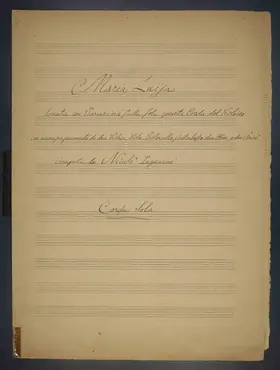 Maria Luisa
Sonata con Variazioni sulla sola quarta Corda del Violino
con accompagnamento di due Violini, Viola, Violoncello, due Oboe
composta da Nicolò Paganini
Corda Sola